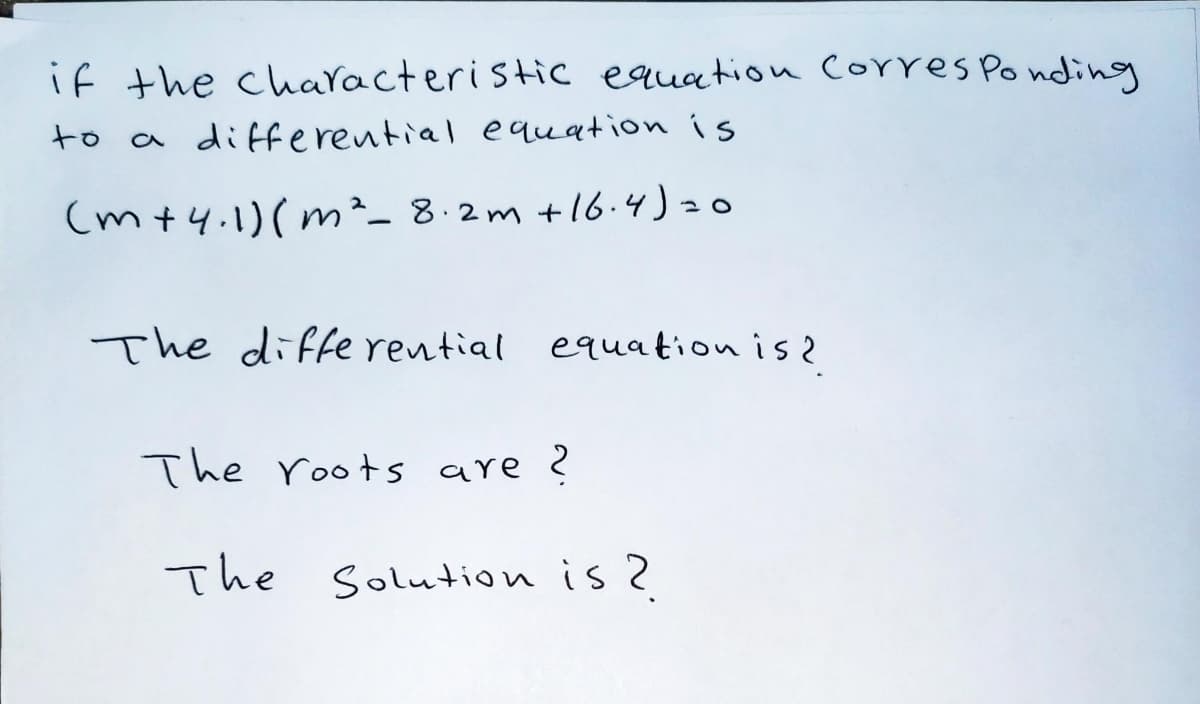 if the characteristic equation Corresponding
to a differential equation is
(m+4.1)(m²- 8.2m +16.4)=0
The differential equation is?
The roots are ?
The Solution is?